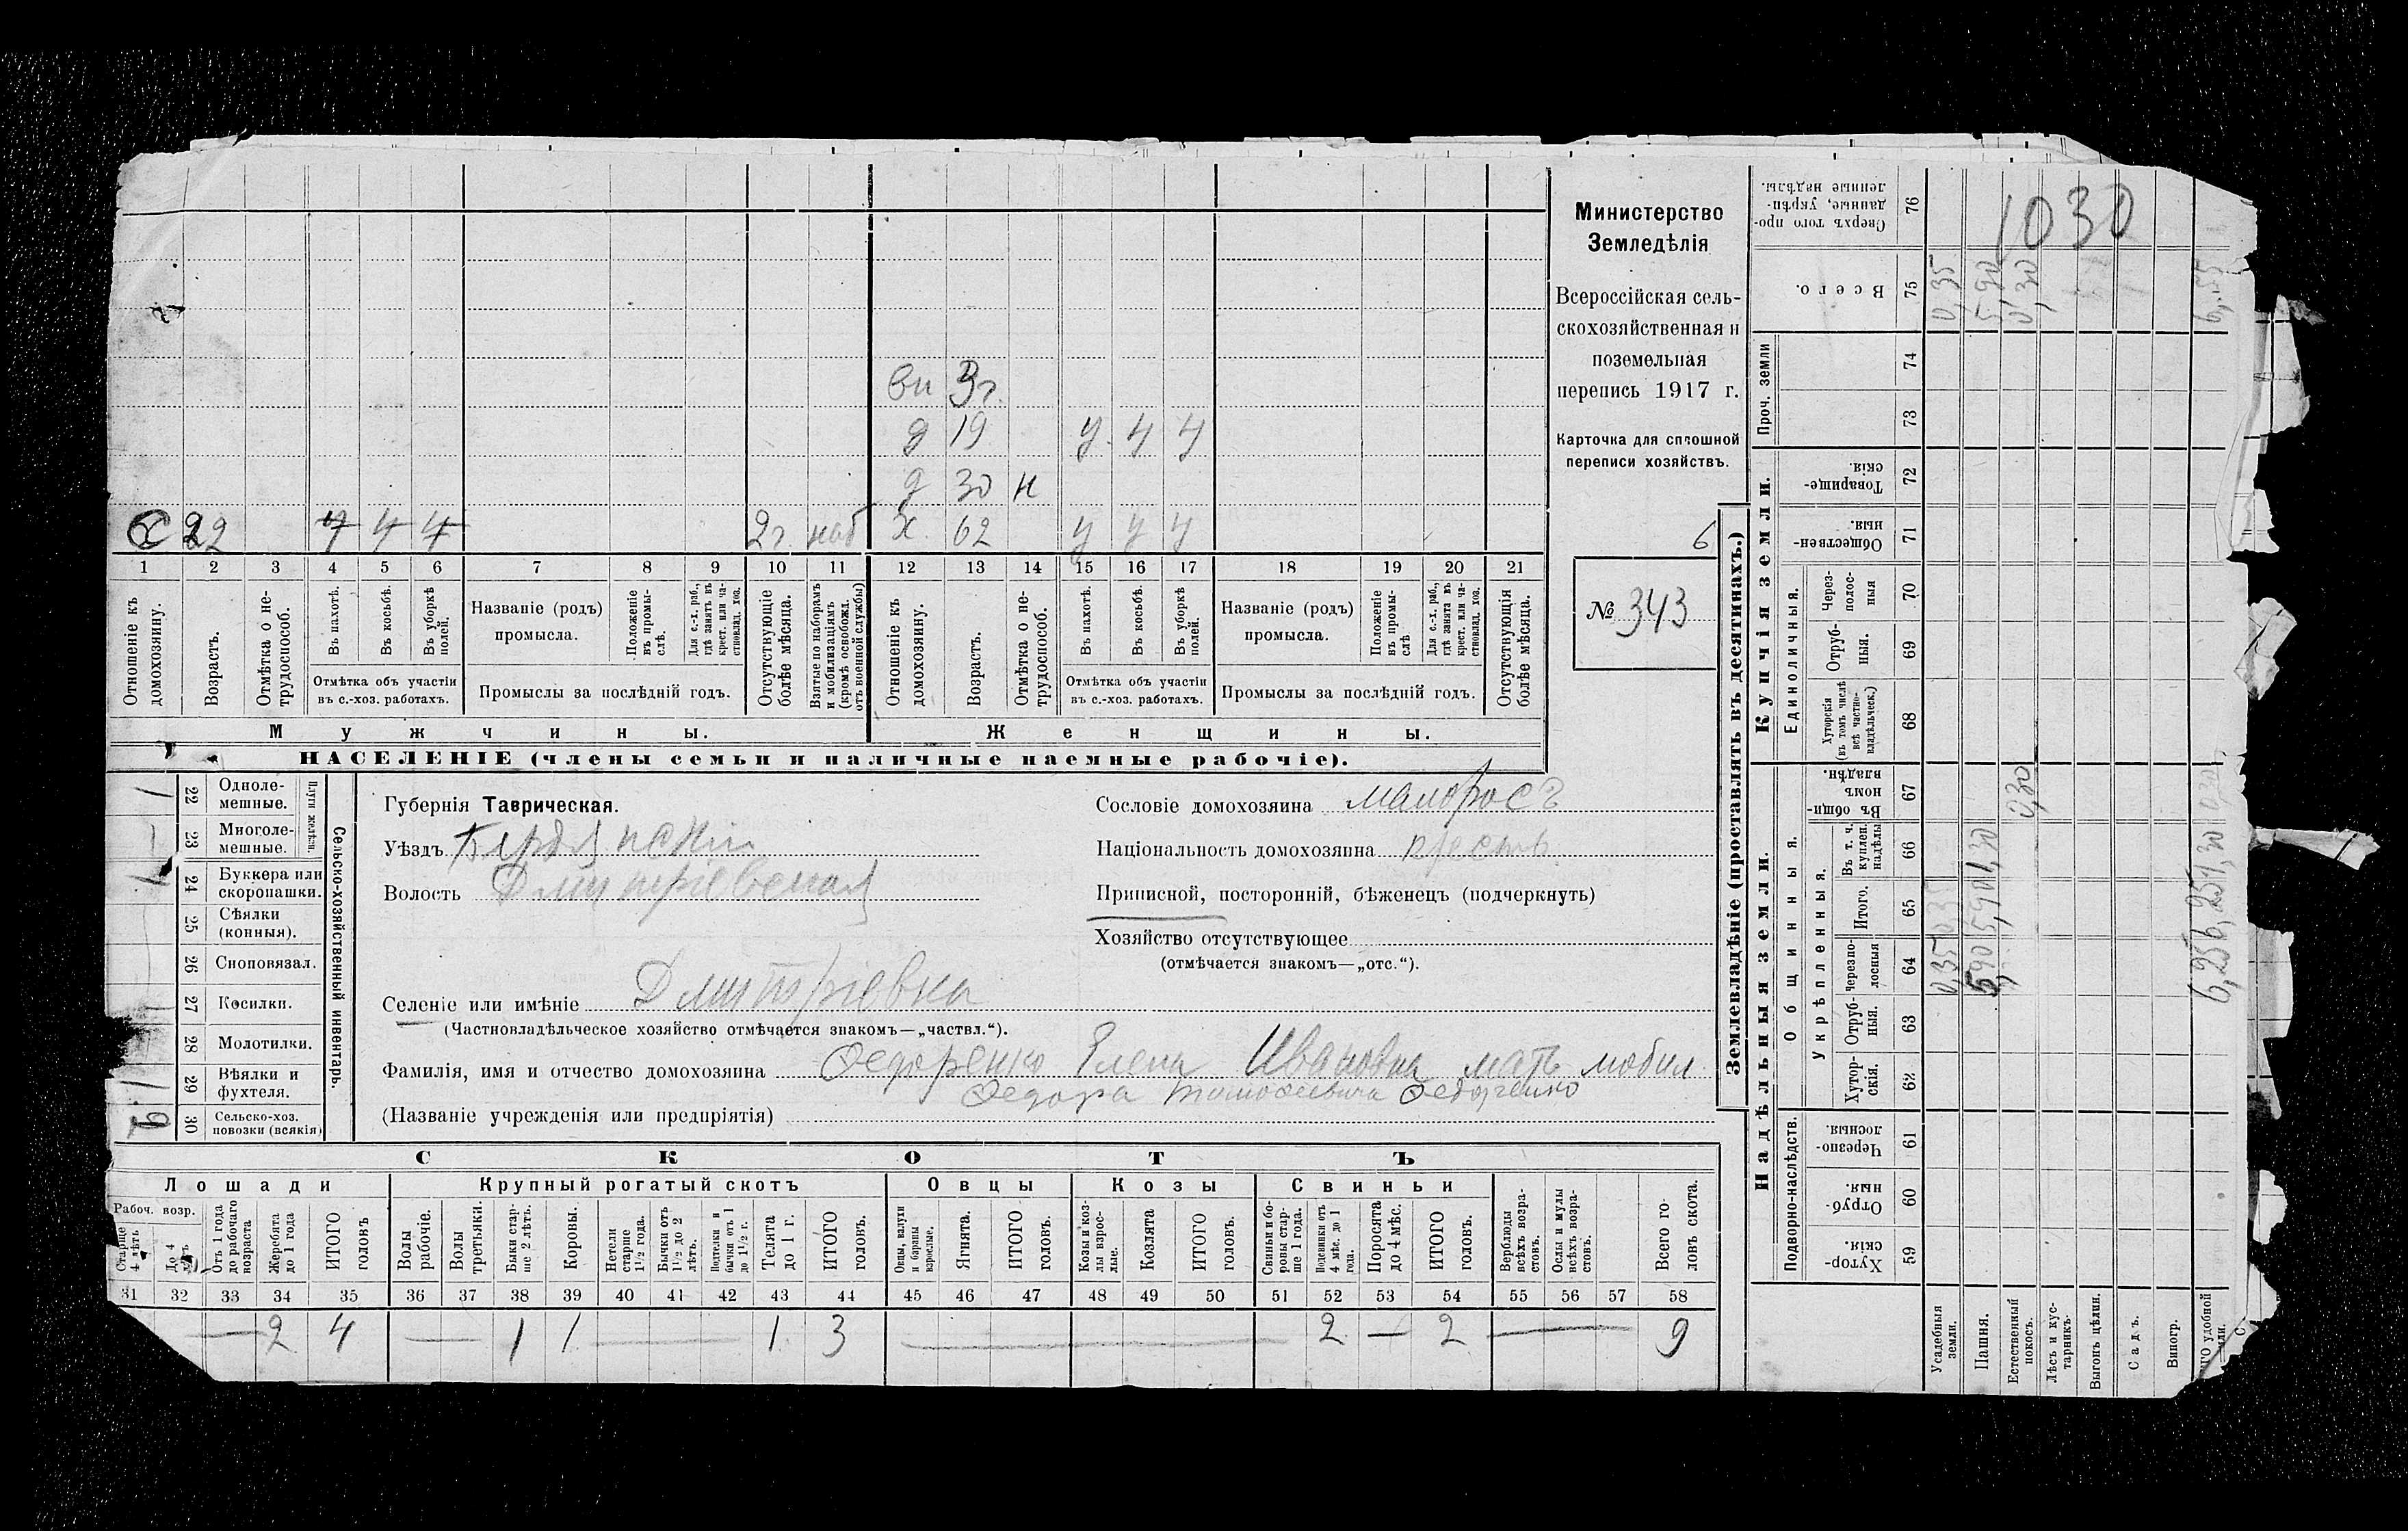 Министерство
Земледѣлія
Всероссійская сель-
скохозяйственная и
поземельная
перепись 1917 г.
Карточка для сплошной
переписи хозяйствъ.
6
№ 343
вн 3 г.
д 19 у 4 4
д 30 н
С 22 4 4 4 2 г. наб х. 62 у у у
1 2 3 4 5 6 7 8 9 10 11 12 13 14 15 16 17 18 19 20 21
Отношеніе къ домохозяину.
Возрастъ.
Отмѣтка о не-трудоспособ.
Въ пахотѣ.
Въ косьбѣ.
Въ уборкѣ полей.
Отмѣтка объ участіи въ с.-хоз. работахъ.
Названіе (родъ) промысла.
Положеніе въ промы-слѣ.
Для с.-х. раб., гдѣ занятъ въ крест. или ча-стновлад. хоз.
Промыслы за послѣдній годъ.
Отсутствующіе болѣе мѣсяца.
Взятые по наборамъ и мобилизаціямъ (кромѣ освобожд. отъ военной службы)
Отношеніе къ домохозяину.
Возрастъ.
Отмѣтка о не-трудоспособ.
Въ пахотѣ.
Въ косьбѣ.
Въ уборкѣ полей.
Отмѣтка объ участіи въ с.-хоз. работахъ.
Названіе (родъ) промысла.
Положеніе въ промы-слѣ
Для с.-х. раб., гдѣ занята въ крест. или ча-стновлад. хоз.
Промыслы за послѣдній годъ.
Отсутствующія болѣе мѣсяца.
Мужчины. Женщины.
НАСЕЛЕНІЕ (члены семьи и наличные наемные рабочіе).
Сельско-хозяйственный инвентарь.
Плуги желѣзн.
22 Одноле-мешные. 1
23 Многоле-мешные. —
24 Буккера или скоропашки. 1
25 Сѣялки (конныя).
26 Сноповязал.
27 Косилки.
28 Молотилки.
29 Вѣялки и фухтеля. 1
30 Сельско-хоз. повозки (всякія)
Губернія Таврическая.
Уѣздъ Бердянскій
Волость Дмитріевская
Селеніе или имѣніе Дмитріевка
(Частновладѣльческое хозяйство отмѣчается знакомъ—„частвл.“).
Фамилія, имя и отчество домохозяина Федоренко Елена Ивановна мать мобил.
Федора Тимофеевича Федоренко
(Названіе учрежденія или предпріятія)
Сословіе домохозяина малоросъ
Національность домохозяина крестъ.
Приписной, посторонній, бѣженецъ (подчеркнуть)
Хозяйство отсутствующее
(отмѣчается знакомъ—„отс.“).
СКОТЪ
Лошади Крупный рогатый скотъ Овцы Козы Свиньи
Рабоч. возр.
Старше 4 лѣтъ
До 4 лѣтъ
Отъ 1 года до рабочаго возраста
Жеребята до 1 года
ИТОГО головъ
Волы рабочіе.
Волы третьяки.
Быки стар-ше 2 лѣтъ.
Коровы.
Нетели старше 1½ года.
Бычки отъ 1½ до 2 лѣтъ.
Подтелки и бычки отъ 1 до 1½ г.
Телята до 1 г.
ИТОГО головъ.
Овцы, валухи и бараны взрослые.
Ягнята.
ИТОГО головъ.
Козы и коз-лы взрос-лые.
Козлята
ИТОГО головъ.
Свиньи и бо-ровы стар-ше 1 года.
Подсвинки отъ 4 мѣс. до 1 года.
Поросята до 4 мѣс.
ИТОГО головъ.
Верблюды всѣхъ возра-стовъ.
Ослы и мулы всѣхъ возра-стовъ.
Всего го-ловъ скота.
31 32 33 34 35 36 37 38 39 40 41 42 43 44 45 46 47 48 49 50 51 52 53 54 55 56 57 58
— 2 4 — 1 1 — 1 3 — 2 — 2 — 9
Землевладѣніе (проставлять въ десятинахъ.)
Надѣльныя земли. Купчія земли.
Подворно-наслѣдств.
Общинныя.
Укрѣпленныя.
Единоличныя.
Проч. земли
59 Хутор-скія.
60 Отруб-ныя.
61 Черезпо-лосныя.
62 Хутор-скія.
63 Отруб-ныя.
64 Черезпо-лосныя
65 Итого.
66 Въ т. ч. куплен. надѣлы
67 Въ общи-номъ владѣн.
68 Хуторскія (въ томъ числѣ всѣ частно-владѣльческ.)
69 Отруб-ныя.
70 Через-полос-ныя
71 Обществен-ныя.
72 Товарище-скія.
73
74
75 Всего.
76 Сверхъ того про-данные, укрѣп-ленные надѣлы.
Усадебныя земли. 0,35 0,35 0,35
Пашня. 5,90 5,90 1,30 5,90
Естественный покосъ. 0,30 0,30
Лѣсъ и кус-тарникъ.
Выгонъ цѣлин.
Садъ.
Виногр.
удобной 6,25 6,25 1,30 0,30 6,55
1030